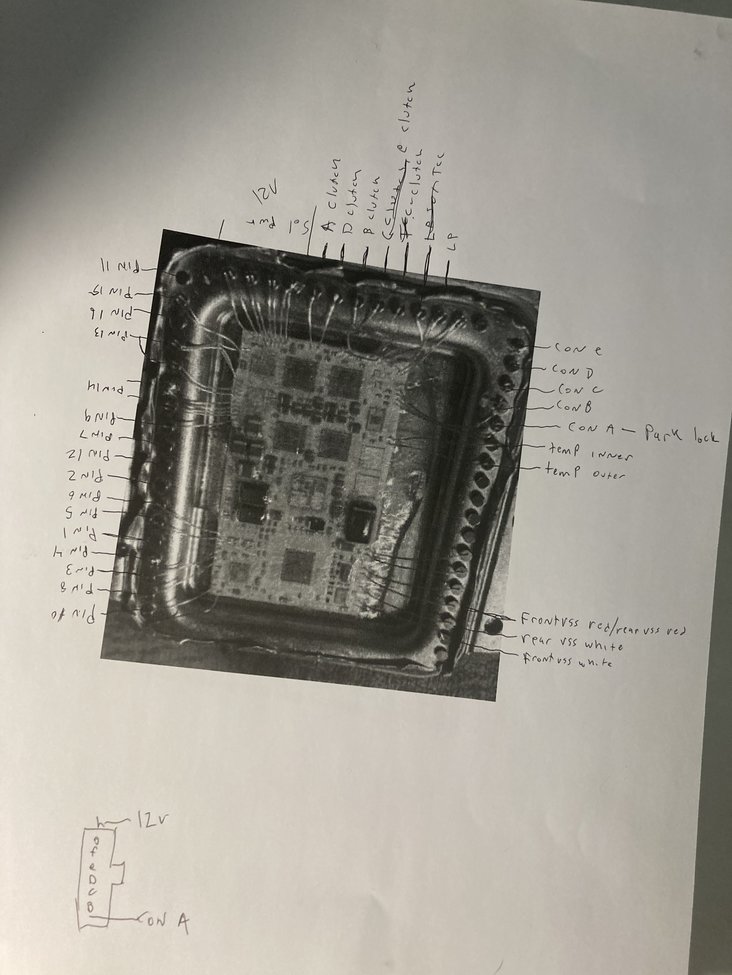 12V
Pwr
Sol
A clutch
D clutch
B clutch
C clutch
E clutch
TCC
clutch
LP
Pin 11
Pin 15
Pin 16
Pin 13
Pin 14
Pin 9
Pin 7
Pin 12
Pin 2
Pin 6
Pin 5
Pin 1
Pin 4
Pin 3
Pin 8
Pin 10
CON e
CON D
CON C
CON B
CON A — Park lock
temp inner
temp outer
Front vss red/rear vss red
rear vss white
Front vss white
h 12v
g
f
e
D
C
B
CON A